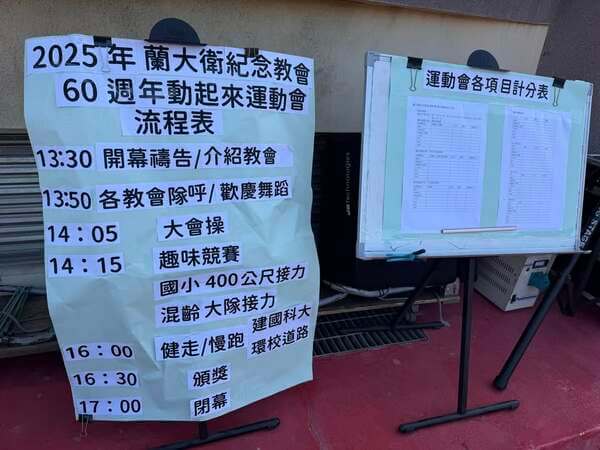 2025年 蘭大衛紀念教會
60週年動起來運動會
流程表
13:30 開幕禱告/介紹教會
13:50 各教會隊呼/歡慶舞蹈
14:05 大會操
14:15 趣味競賽
國小400公尺接力
混齡大隊接力
16:00 健走/慢跑 建國科大
環校道路
16:30 頒獎
17:00 閉幕
運動會各項目計分表